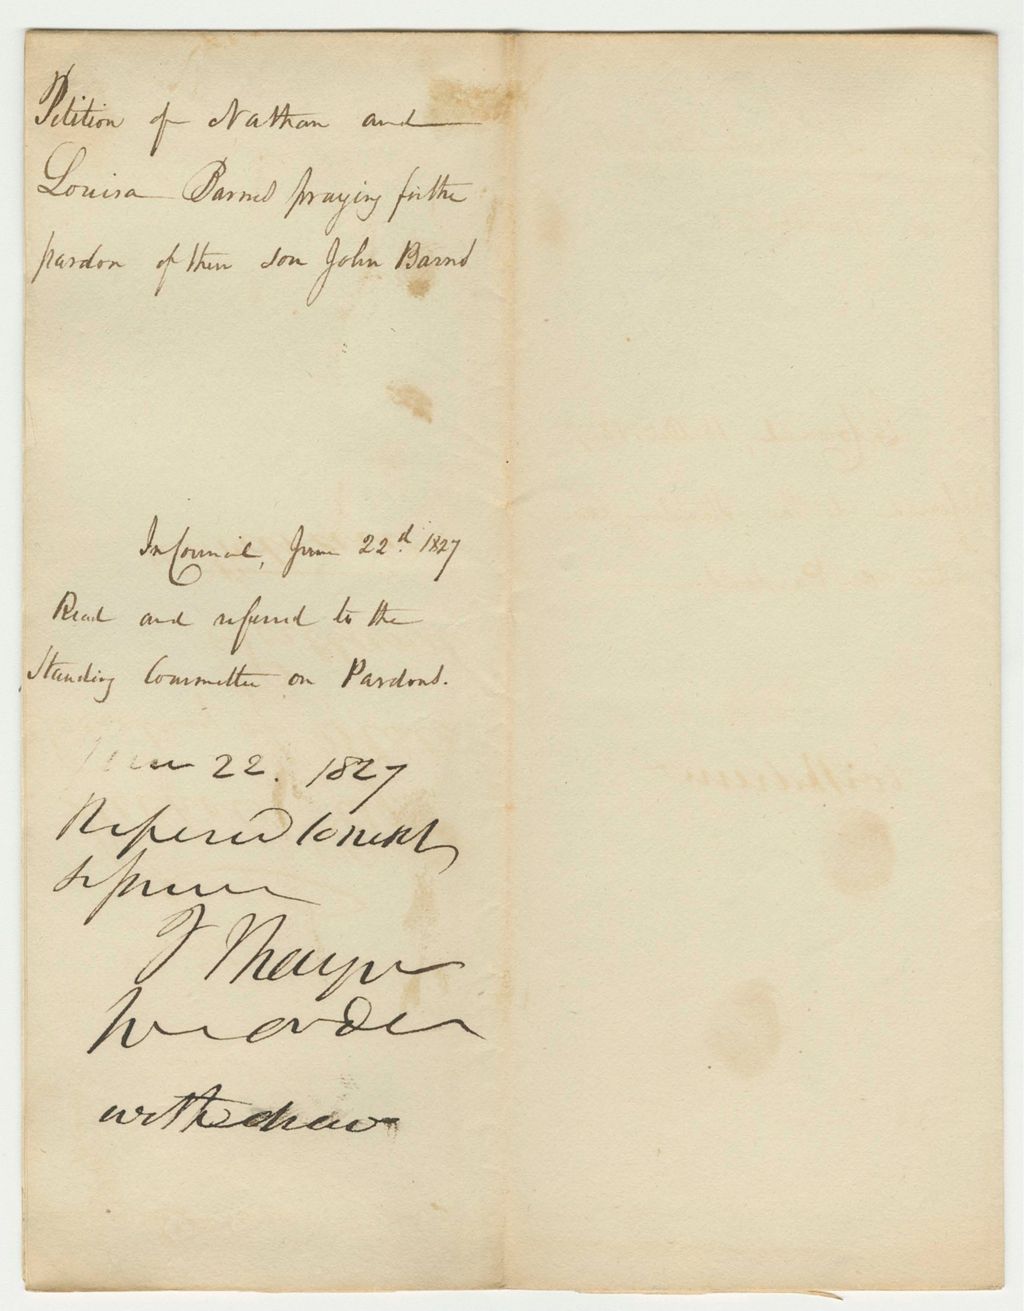 Petition of Nathan and
Louisa Barnes praying for the
pardon of their son John Barnes
In Council, June 22d. 1827
Read and referred to the
Standing Committee on Pardons.
June 22. 1827
Refered to next
session
J Thayer
pr order
withdraw